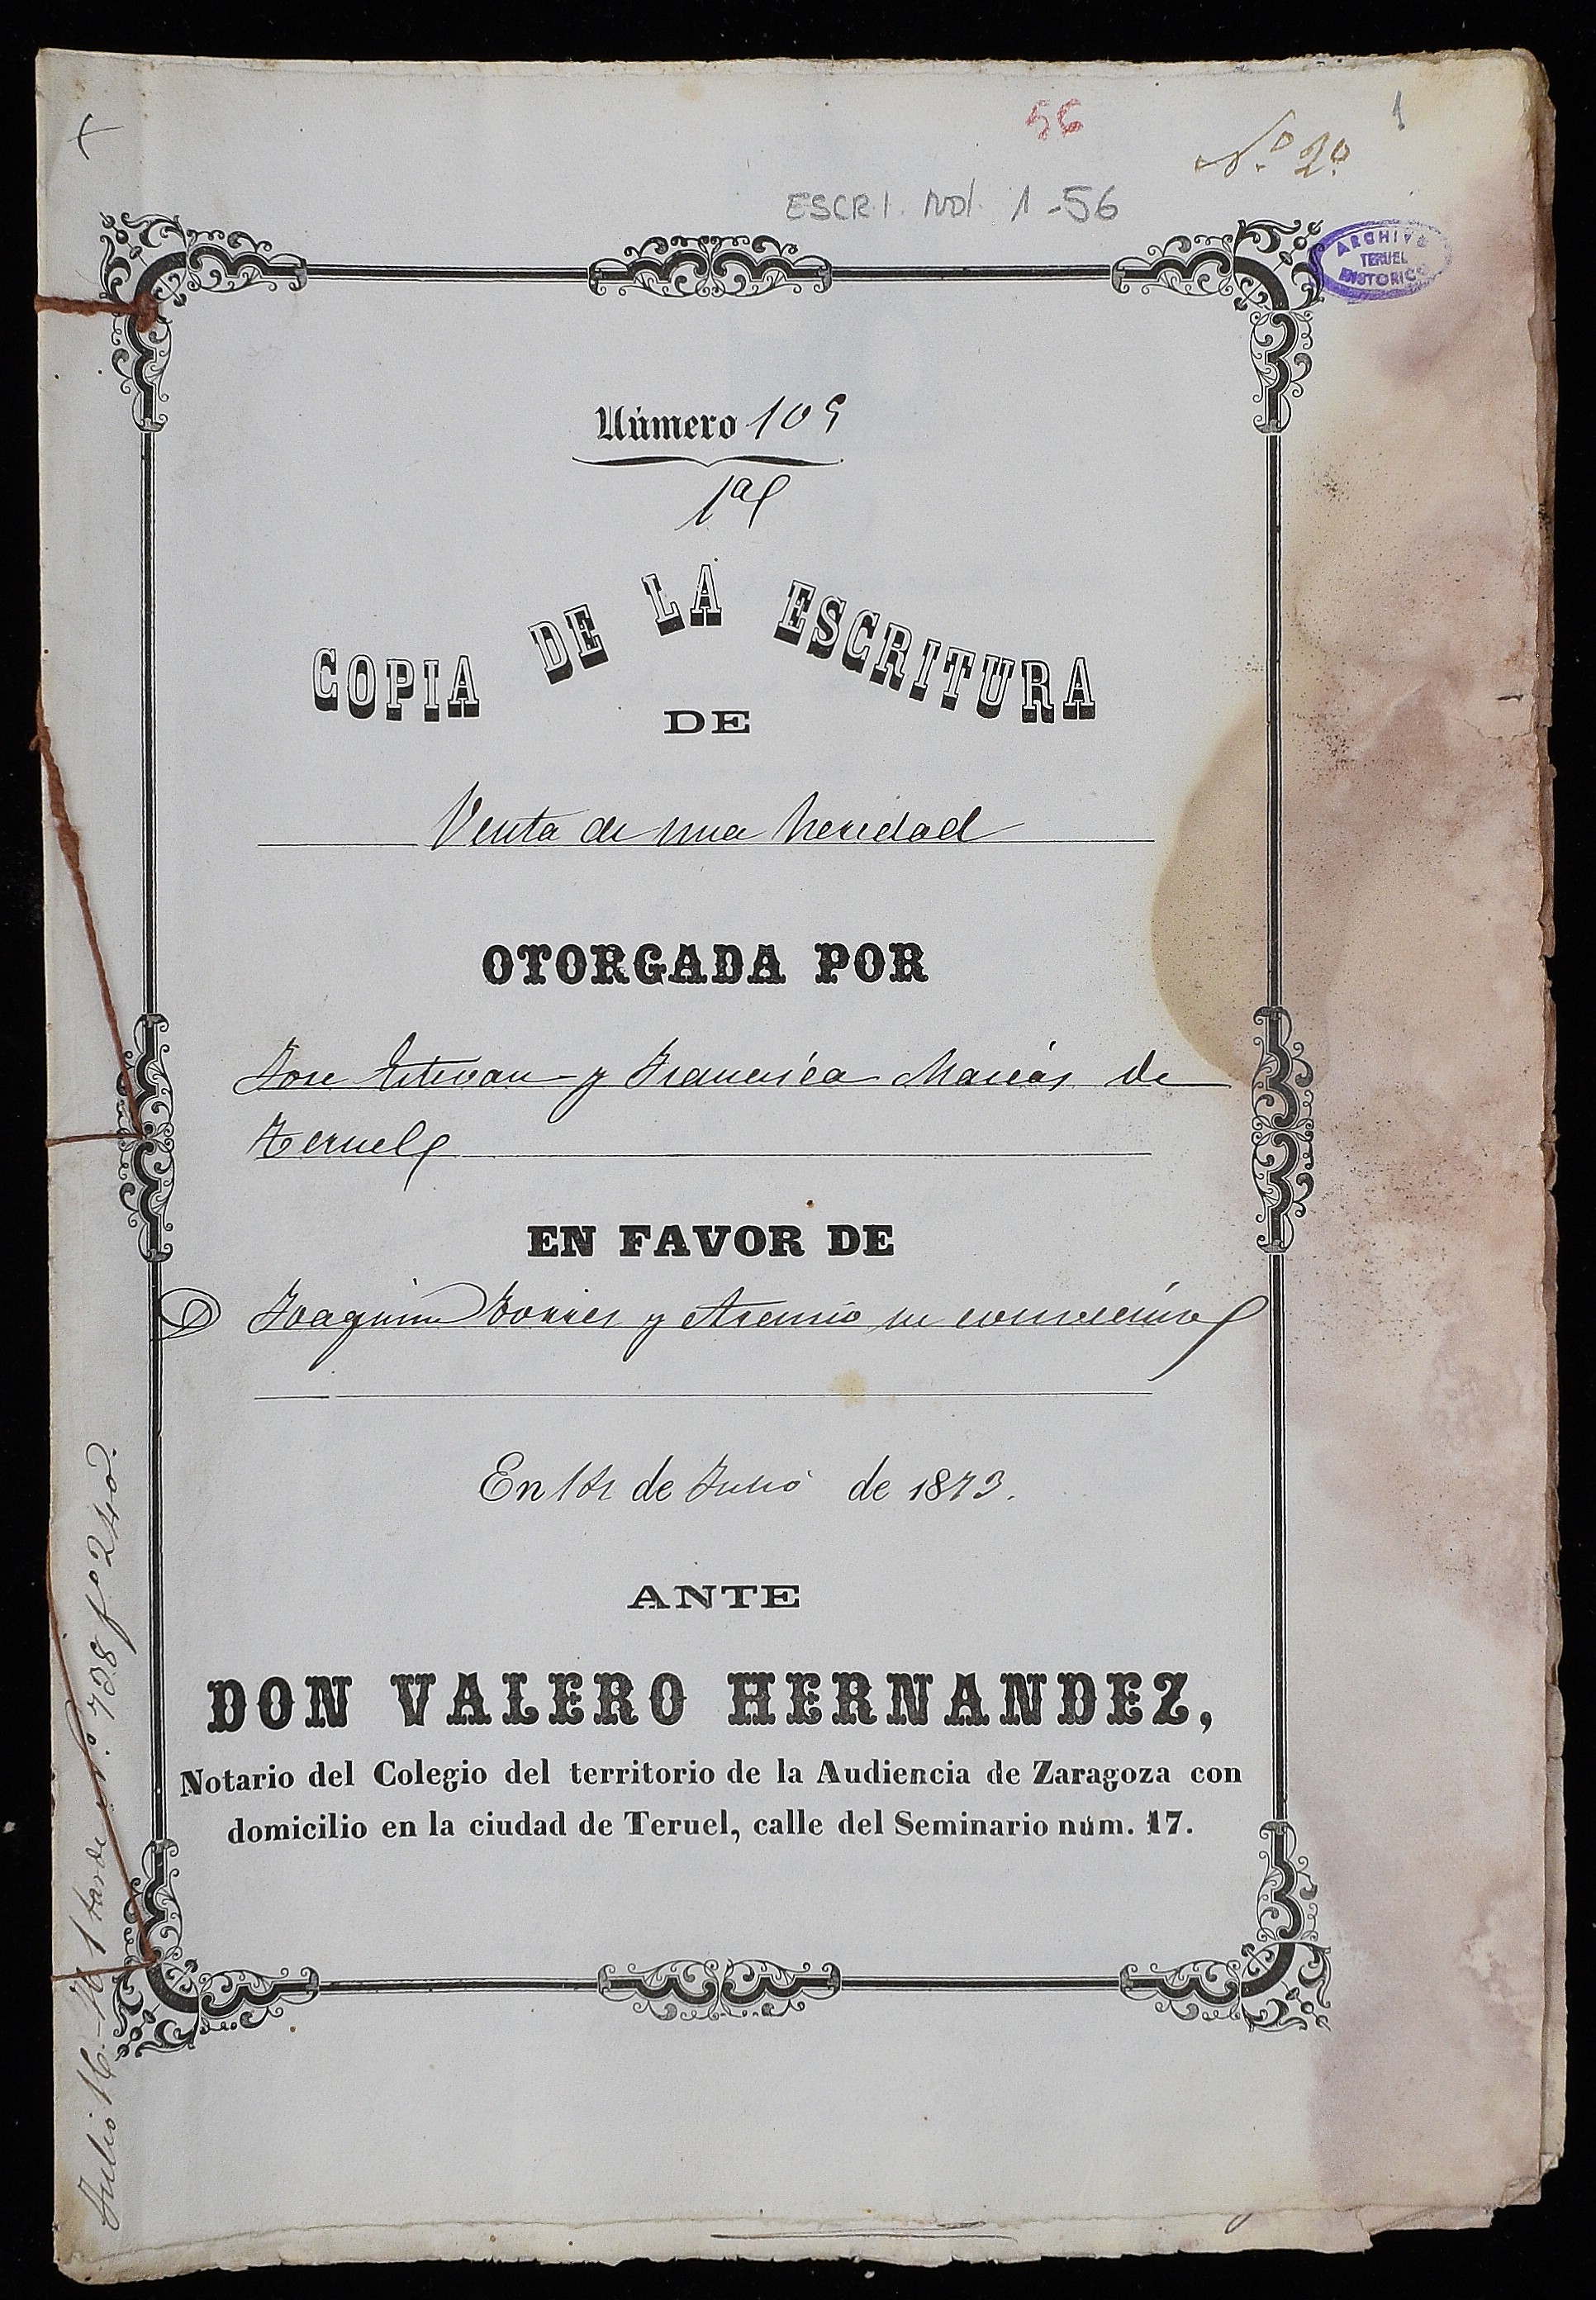 1
56
Nº 2º
ESCRI. NOt. 1-56
ARCHIVO
TERUEL
HISTORICO
Número 109
1ª
COPIA DE LA ESCRITURA
DE
Venta de una heredad
OTORGADA POR
Jose Estevan y Francisca Macias de
Teruel
EN FAVOR DE
D Joaquin Torres y Asensio su convecino
En 14 de Julio de 1873.
ANTE
DON VALERO HERNANDEZ,
Notario del Colegio del territorio de la Audiencia de Zaragoza con
domicilio en la ciudad de Teruel, calle del Seminario núm. 17.
Julio 16 1 tarde nº 798 fº 240.